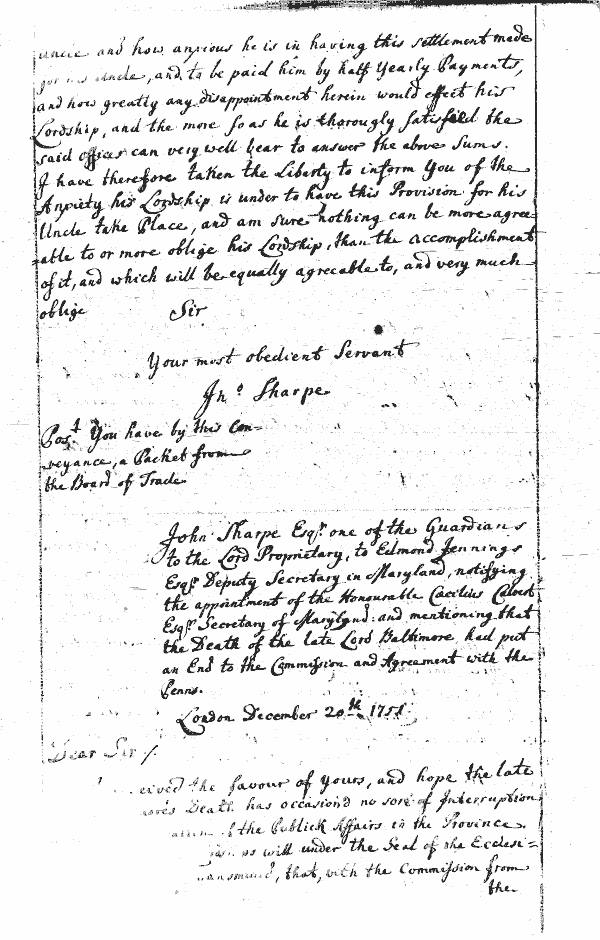 Uncle and how anxious he is in having this settlement made
for his Uncle, and to be paid him by half Yearly Payments,
and how greatly any disappointment herein would effect his
Lordship, and the more so as he is thorougly satisfied the
said offices can very well bear to answer the above Sums.
I have therefore taken the Liberty to inform You of the
Anxiety his Lordship is under to have this Provision for his
Uncle take Place, and am sure nothing can be more agree-
-able to or more oblige his Lordship, than the accomplishment
of it, and which will be equally agreeable to, and very much
oblige Sir
Your most obedient Servant
Jno. Sharpe
Post. You have by this Con-
veyance, a Packet from
the Board of Trade
John Sharpe Esqr. one of the Guardians
to the Lord Proprietary, to Edmond Jennings
Esqr. Deputy Secretary in Maryland, notifying
the appointment of the Honourable Cæcilius Calvert
Esqr. Secretary of Maryland: and mentioning that
the Death of the late Lord Baltimore, had put
an End to the Commission and Agreement with the
Penns.
London December 20th. 1751.
Dear Sir /.
the favour of Yours, and hope the late
Death has occasion'd no sort of Interruption
of the Publick Affairs in the Province.
will under the Seal of the Ecclesi=
that, with the Commission from
the